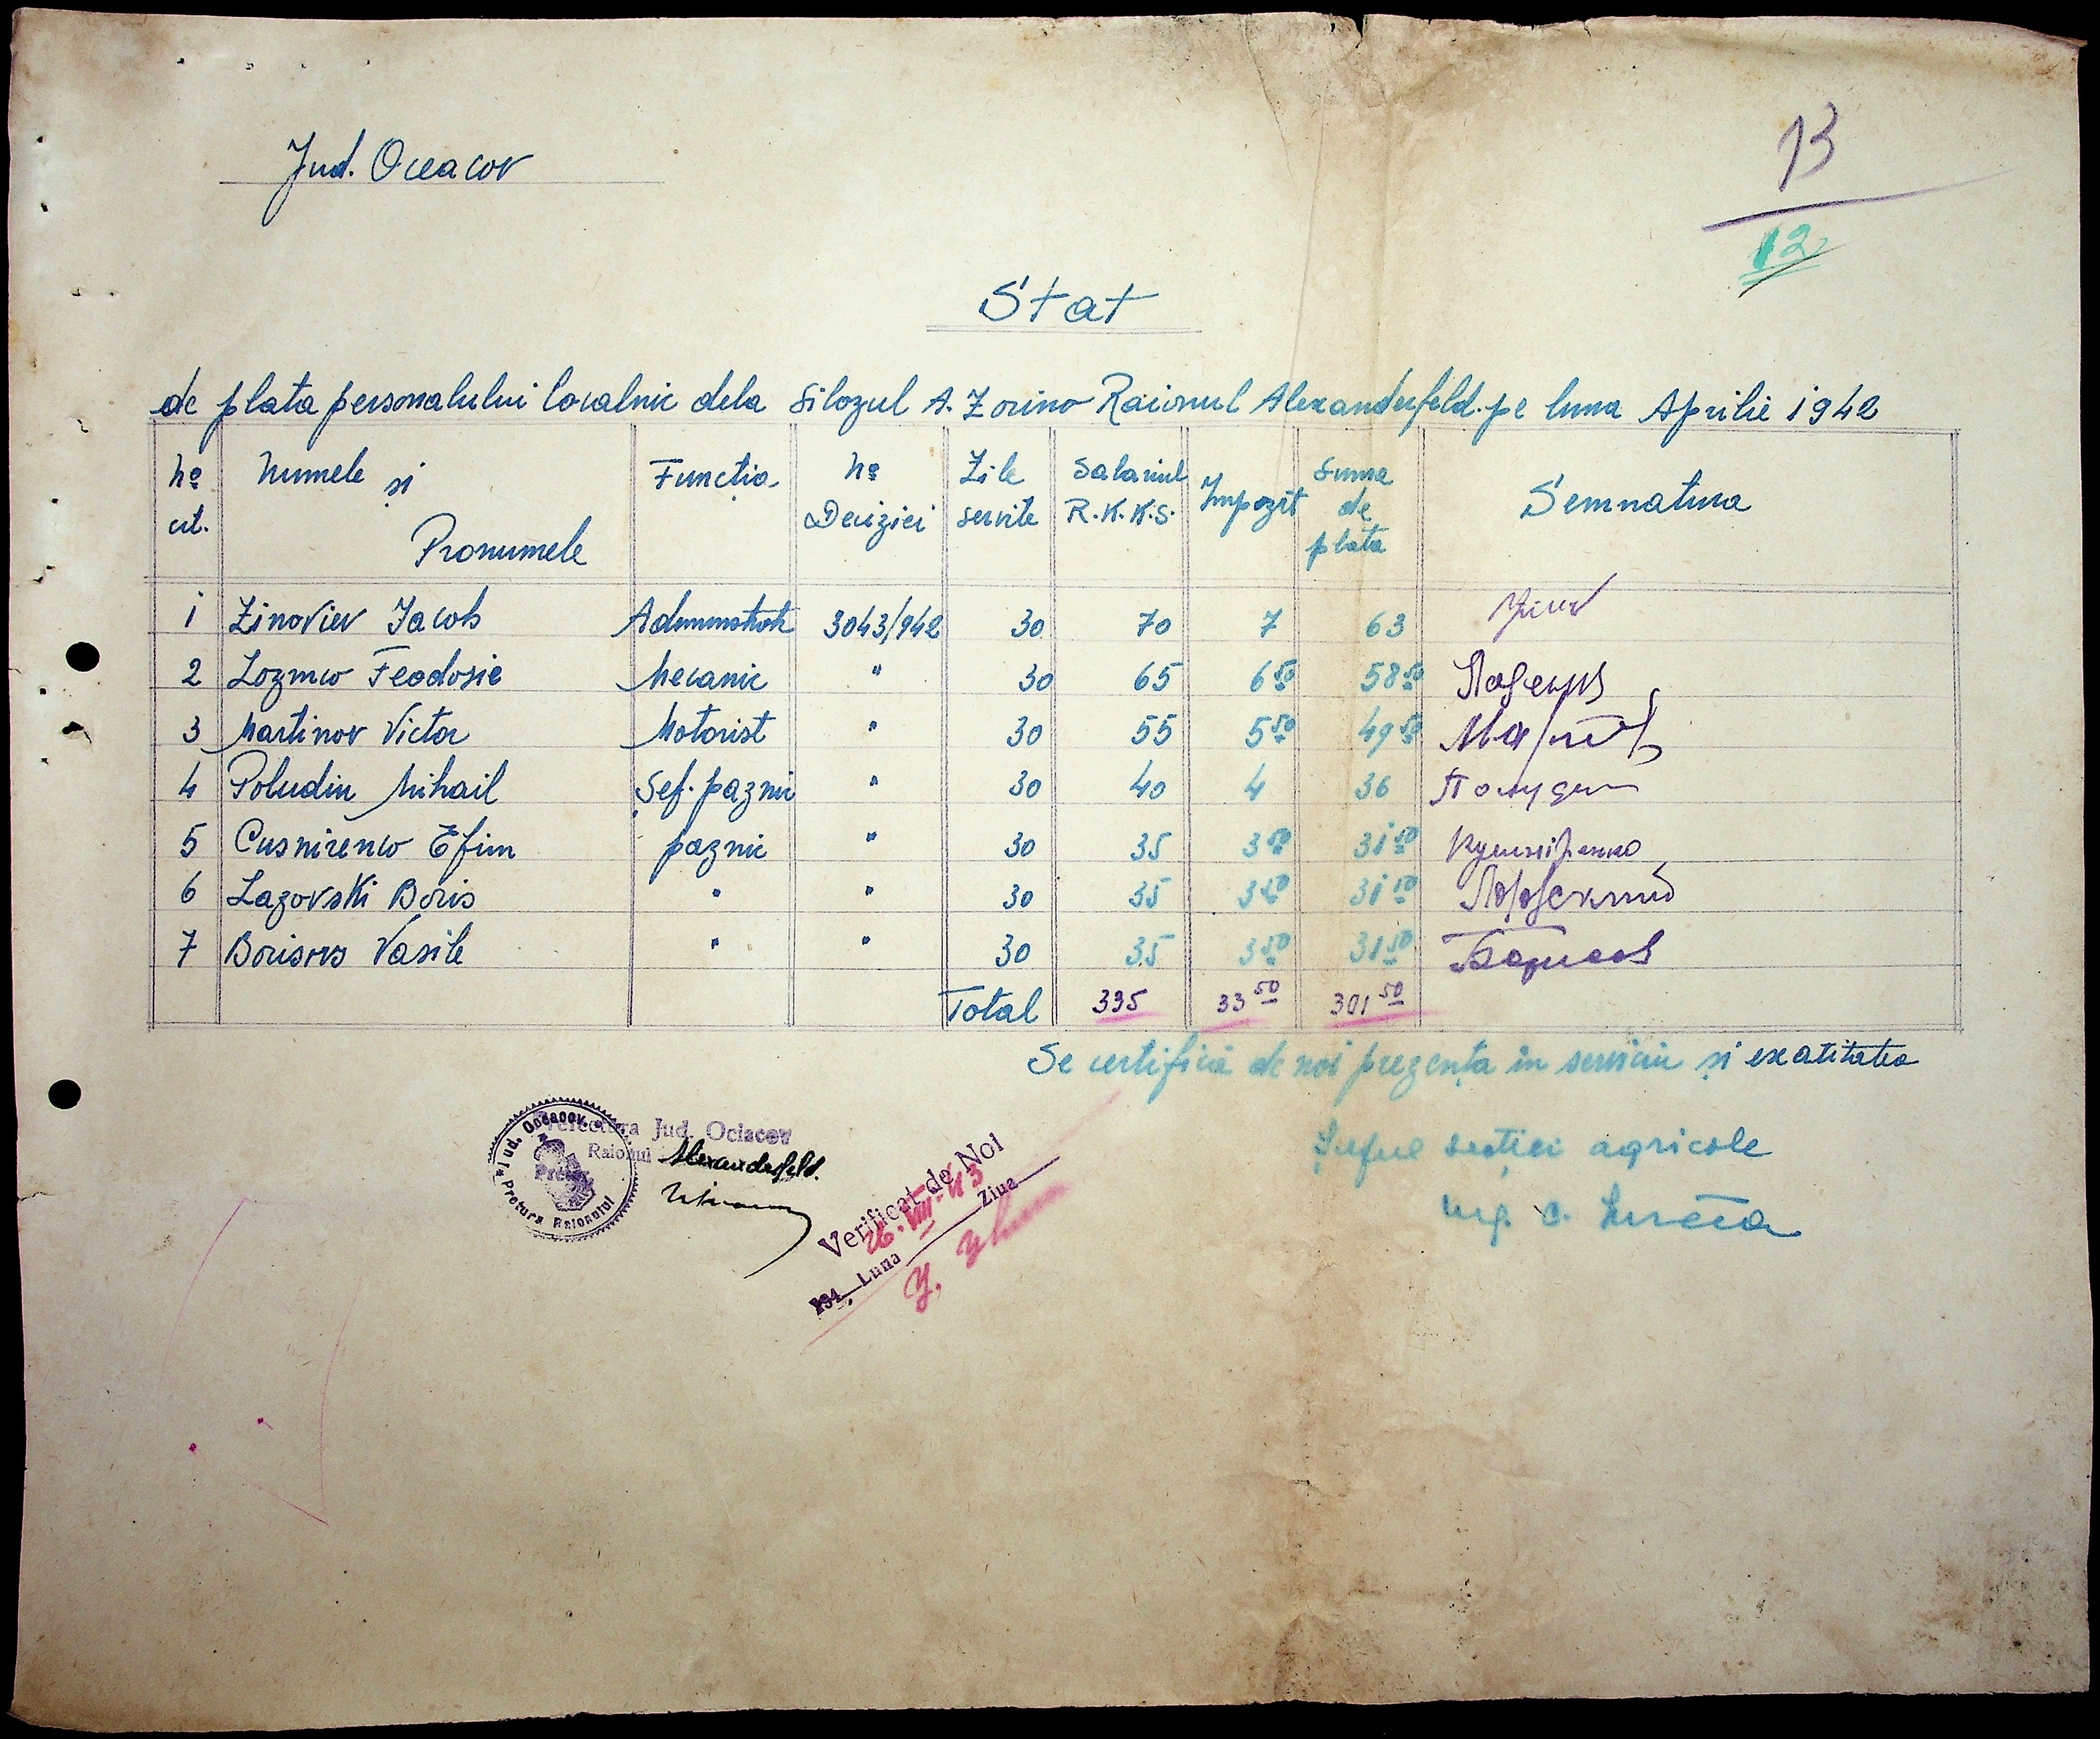 Jud. Oceacov
13
12
Stat
de plata personalului localnic dela Silozul A. Zorino Raionul Alexanderfeld. pe luna Aprilie 1942
No crt. Numele și Pronumele Funcția No Deciziei Zile servite Salariul R.K.K.S. Impozit Suma de plata Semnatura
1 Zinoviev Jacob 3043/942 30 70 7 63
2 Feodosie Mecanic " 30 65 6 50 58 50
3 Martinov Victor Motorist " 30 55 5 50 49 50
4 Poludin Mihail Șef. paznic " 30 40 4 36 Полудин
5 Cusnirenco Efim paznic " 30 35 3 50 31 50 Кушниренко
6 Lazovski Boris " " 30 35 3 50 31 50
7 Borisov Vasile " " 30 35 3 50 31 50 Борисов
Total 335 33 50 301 50
Se certifică de noi prezența în serviciu și exatitatea
Șeful secției agricole
Ing. C.
Jud. Oceacov
Pretura Raionului
Prefectura Jud. Ociacov
Raionul Alexanderfeld.
Verificat de Noi
26.VIII-43
194 Luna Ziua